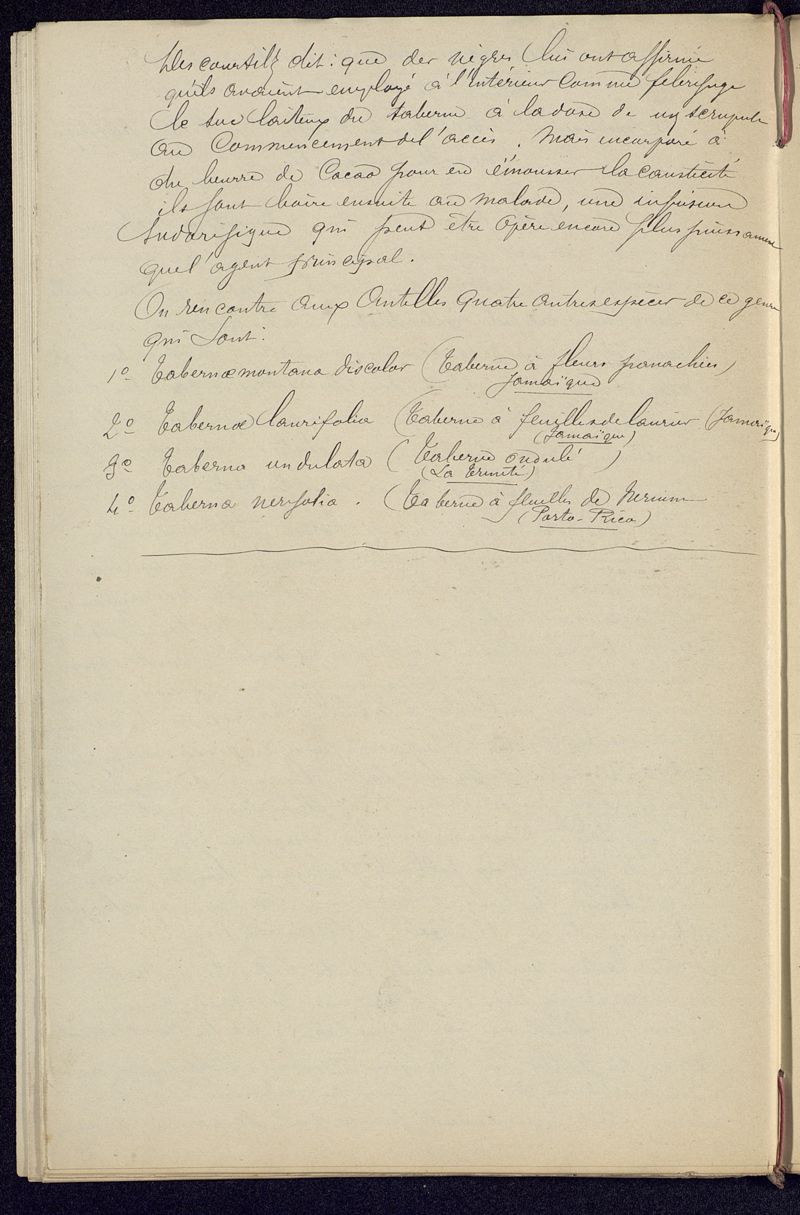 Descourtilz dit : que des nègres lui ont affirmé
qu'ils avaient employé à l'intérieur comme febrifuge
le suc laiteux du taberne à la dose de un scrupule
au Commencement de l'accès. Mais incorporé à
du beurre de Cacao pour en émousser la causticité
ils font boire ensuite au malade, une infusion
Sudorifique qui peut être opère encore plus puissamment
que l'agent principal.
On rencontre aux Antilles quatre autres espèces de ce genre
qui sont :
1o Tabernæmontana discolor (Taberne à fleurs panachées)
Jamaïque
2o Tabernæ laurifolia (Taberne à feuilles de laurier (Jamaïque)
(Jamaïque)
3o Taberna undulata (Taberne ondulé)
(La Trinité)
4o Taberna nerifolia. (Taberne à feuilles de Nerium
(Porto-Rico)